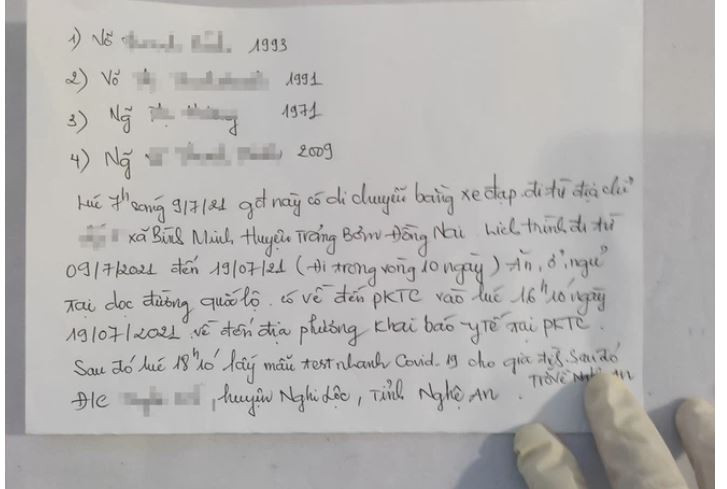 1) Võ 1993
2) Võ 1991
3) Ng̃ 1971
4) Ng̃ 2009
Lúc 7h sáng 9/7/21 gđ này có di chuyển bằng xe đạp đi từ địa chỉ
xã Bình Minh, Huyện Trảng Bom - Đồng Nai Lịch trình đi từ
09/7/2021 đến 19/07/21 (đi trong vòng 10 ngày) Ăn, ở, ngủ
tại dọc đường quốc lộ. có về đến PKTC vào lúc 16h10 ngày
19/07/2021 về đến địa phương khai báo y tế tại PKTC.
Sau đó lúc 18h10' lấy mẫu test nhanh Covid-19 cho gia đình. Sau đó
Trở về Nghệ An
Đ/C , huyện Nghi Lộc, Tỉnh Nghệ An.